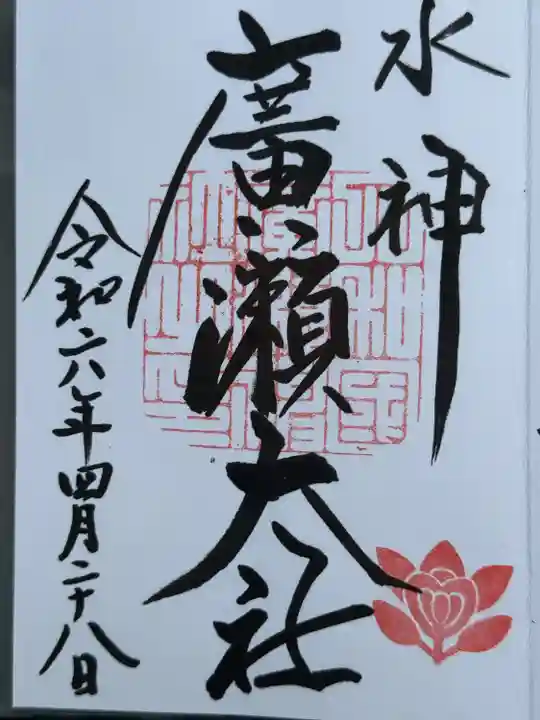 水神
廣瀬大社
令和六年四月二十八日